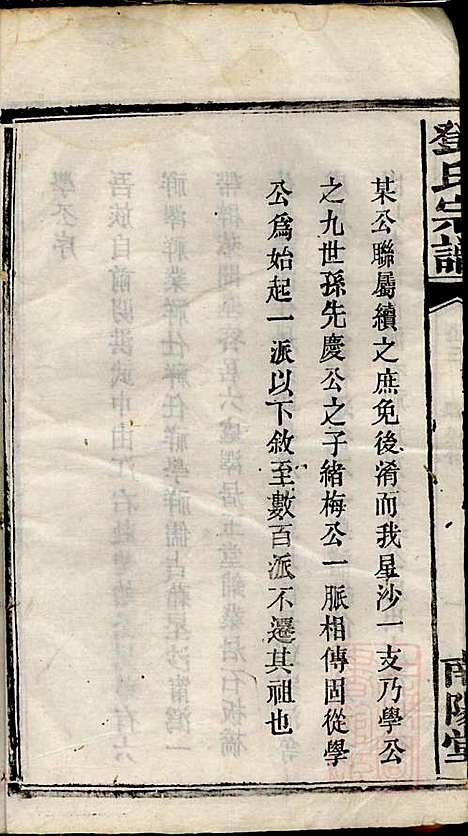 鄧氏宗譜
南陽堂
某公聯屬續之庶免後淆而我星沙一支乃學公
之九世孫先慶公之子緒梅公一脈相傳固從學
公爲始起一派以下敘至數百派不遷其祖也